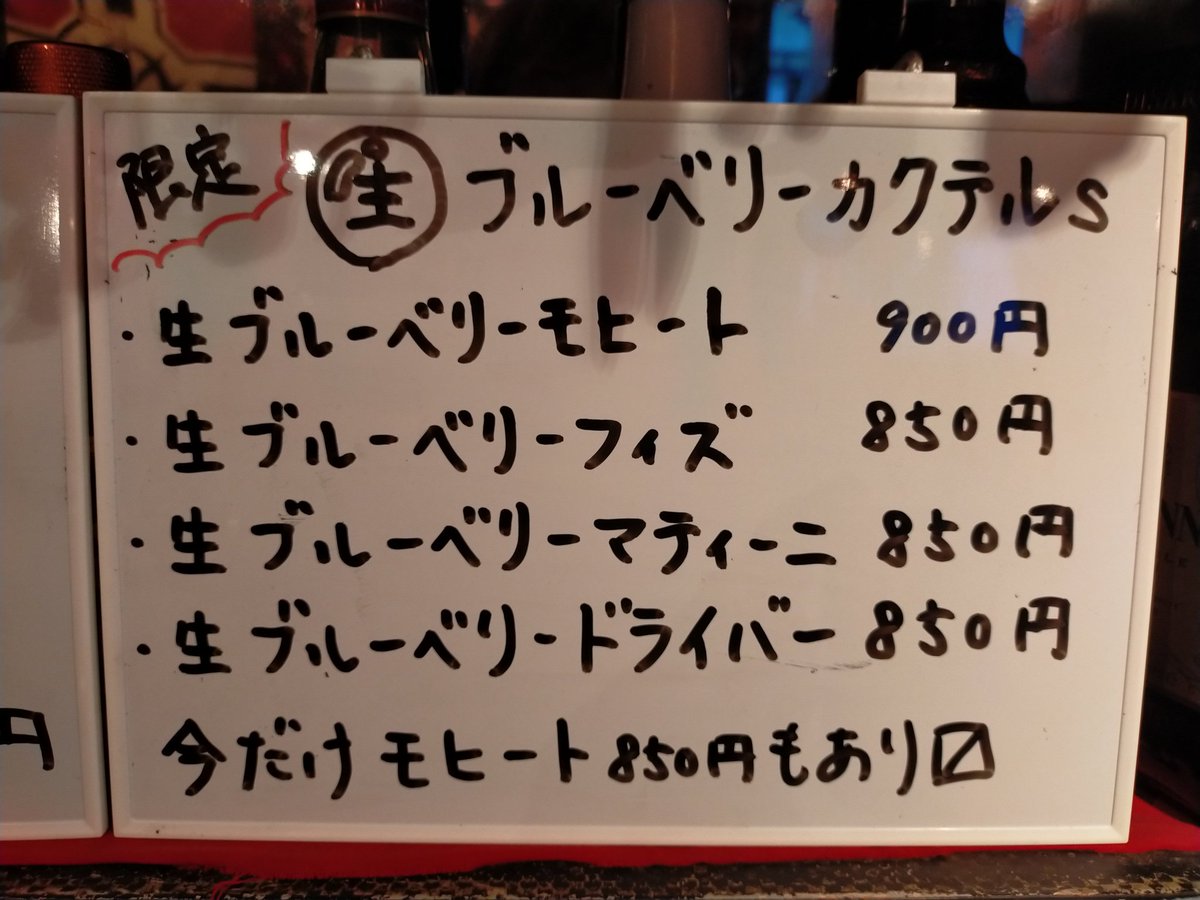 限定 生 ブルーベリーカクテルS
・生ブルーベリーモヒート 900円
・生ブルーベリーフィズ 850円
・生ブルーベリーマティーニ 850円
・生ブルーベリードライバー 850円
今だけモヒート850円もあり〼
円